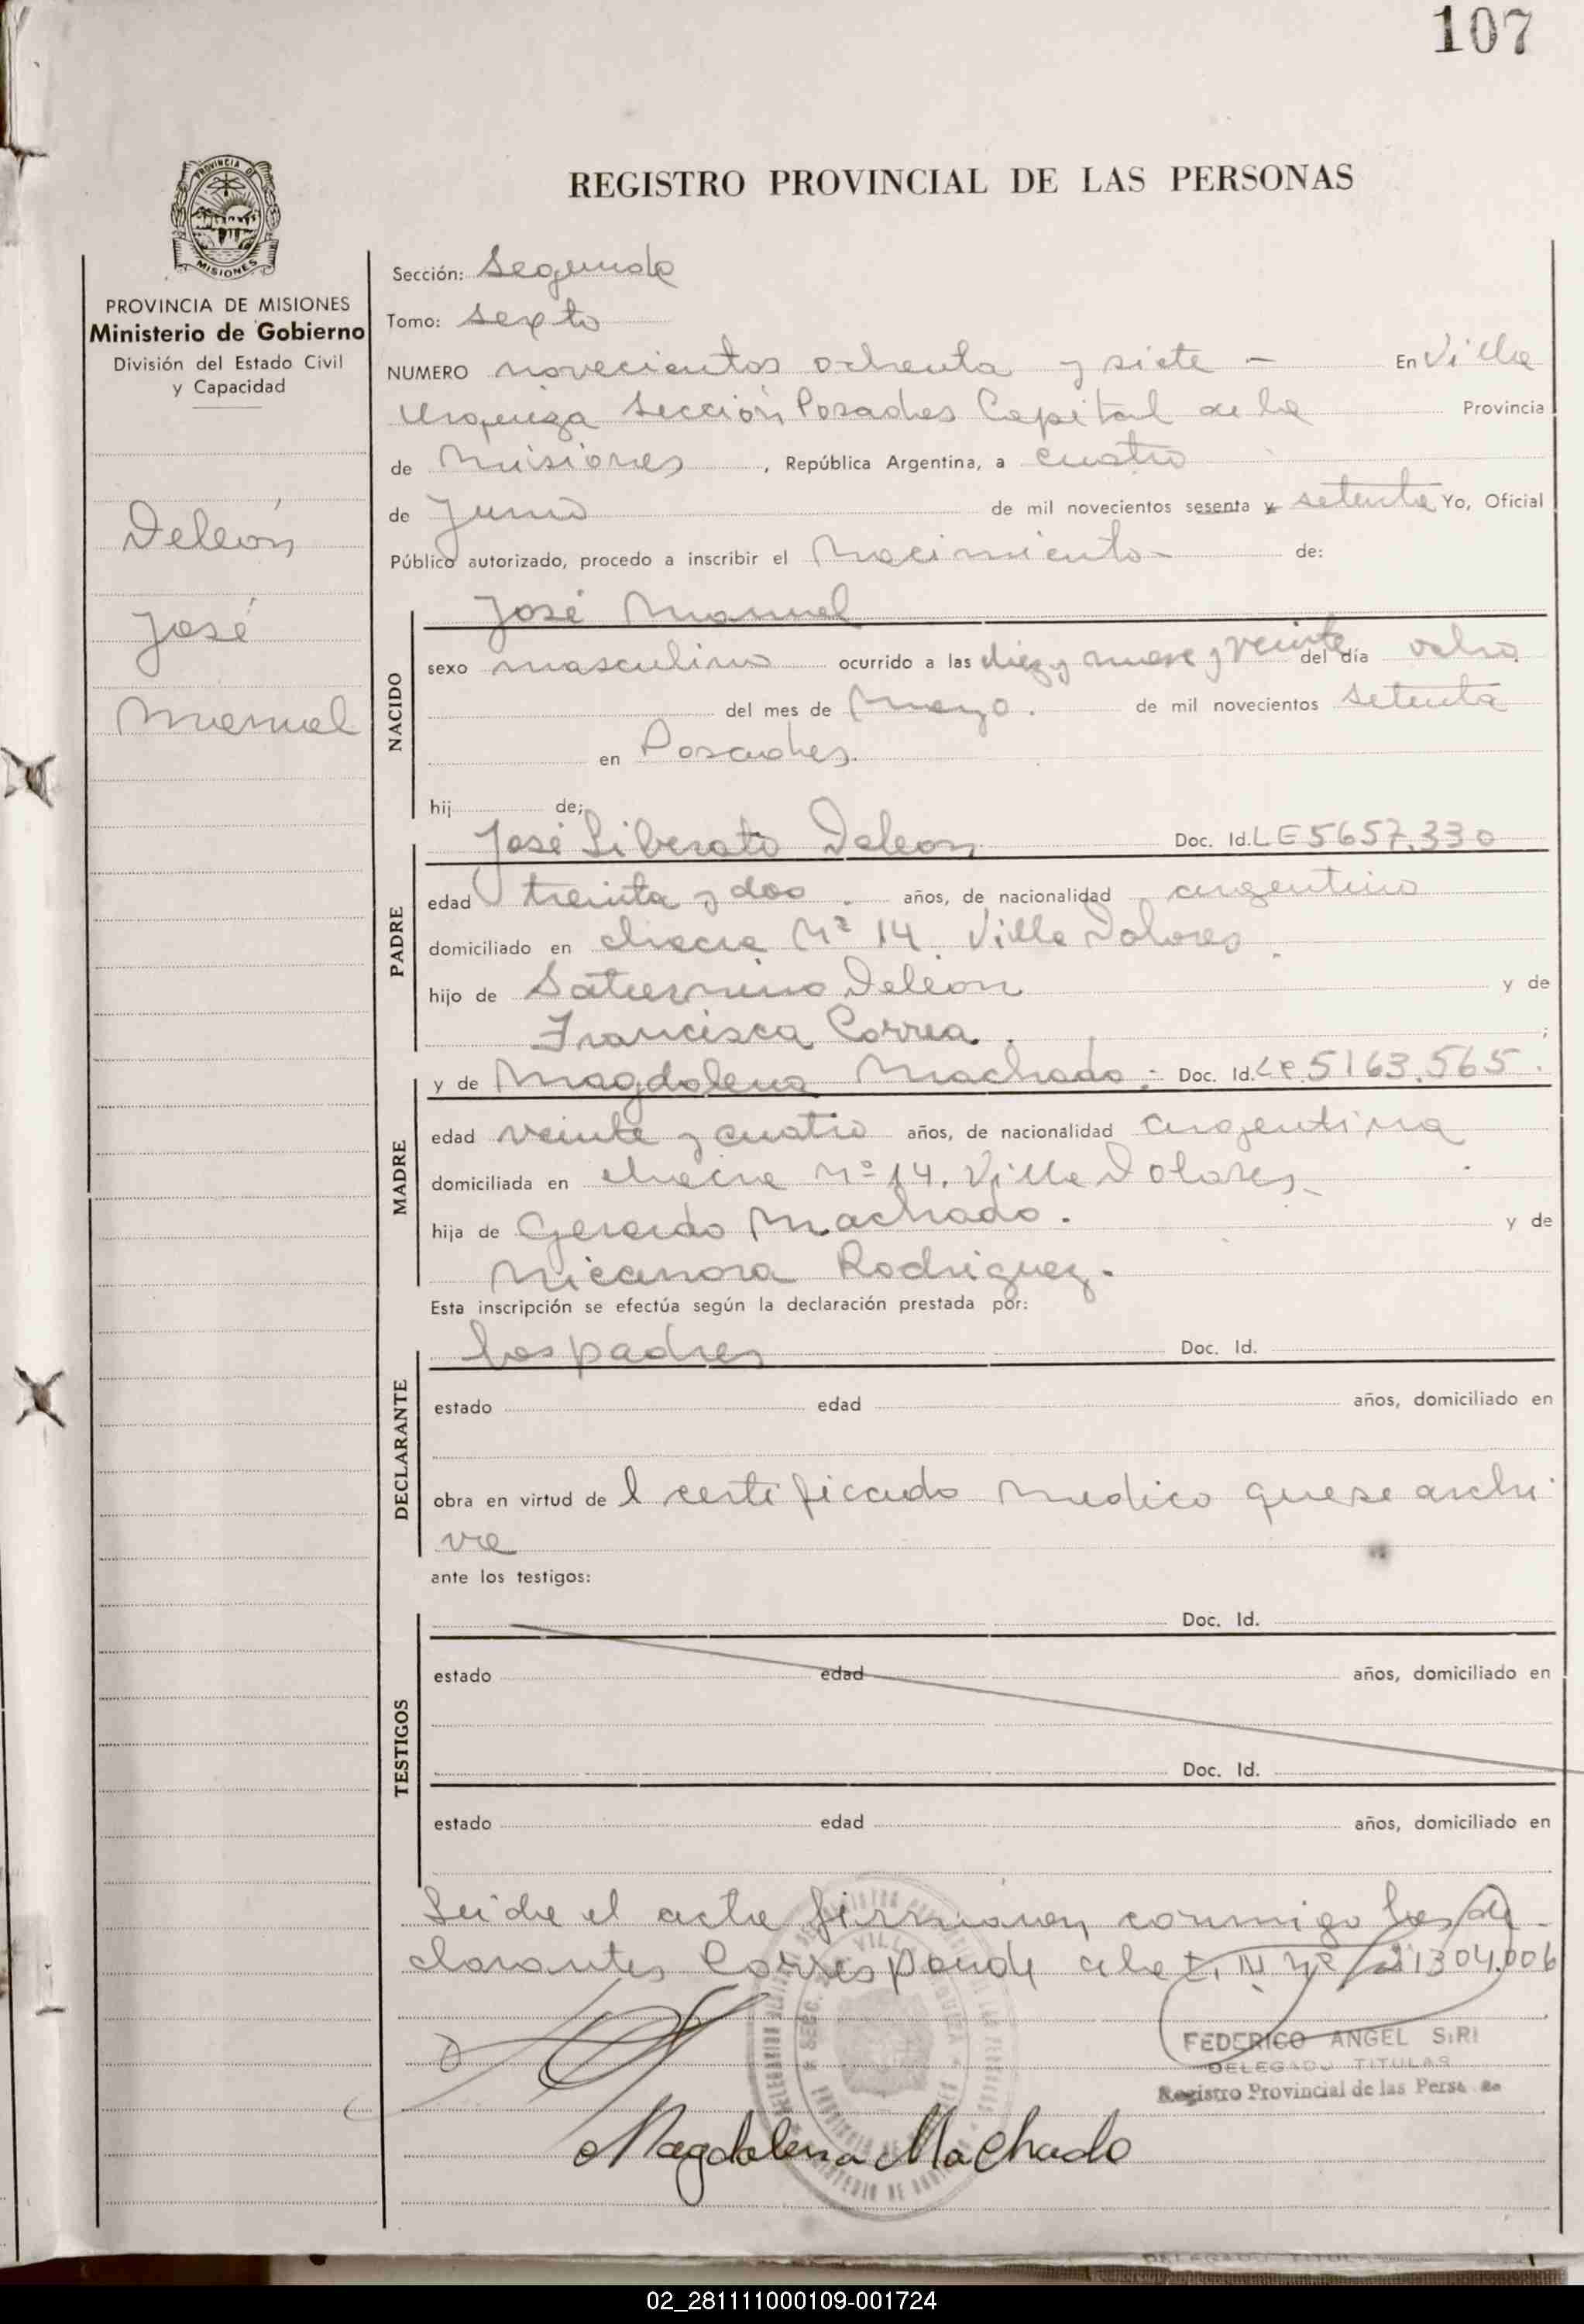 107
REGISTRO PROVINCIAL DE LAS PERSONAS
PROVINCIA DE MISIONES
PROVINCIA DE MISIONES
Ministerio de Gobierno
División del Estado Civil
y Capacidad
Deleón
José
Manuel
Sección: Segunda
Tomo: Sexto
NUMERO novecientos ochenta y siete - En Villa
Urquiza Sección Posadas Capital de la Provincia
de Misiones , República Argentina, a cuatro
de Junio de mil novecientos sesenta y setenta Yo, Oficial
Público autorizado, procedo a inscribir el Nacimiento- de:
José Manuel
NACIDO
sexo masculino ocurrido a las diez y nueve y veinte del día ocho
del mes de Mayo. de mil novecientos setenta
en Posadas.
hij de;
José Liberato Deleon Doc. Id. LE 5657.330
PADRE
edad treinta y dos . años, de nacionalidad argentino
domiciliado en chacra Nº 14. Villa Dolores.
hijo de Saturnino Deleón y de
Francisca Correa. ;
y de Magdalena Machado.- Doc. Id. LC. 5163.565.
MADRE
edad veinte y cuatro años, de nacionalidad argentina
domiciliada en chacra Nº 14. Villa Dolores-
hija de Gerardo Machado. y de
Nicanora Rodriguez.
Esta inscripción se efectúa según la declaración prestada por:
los padres Doc. Id.
DECLARANTE
estado edad años, domiciliado en
obra en virtud de l certificado medico que se archi
va
ante los testigos:
Doc. Id.
TESTIGOS
estado edad años, domiciliado en
Doc. Id.
estado edad años, domiciliado en
Leida el acta firmaron conmigo los de
clarantes Corresponde a la L. N Nº 21304.006
FEDERICO ANGEL SIRI
DELEGADO TITULAR
Registro Provincial de las Persa as
Magdalena Machado
02_281111000109-001724